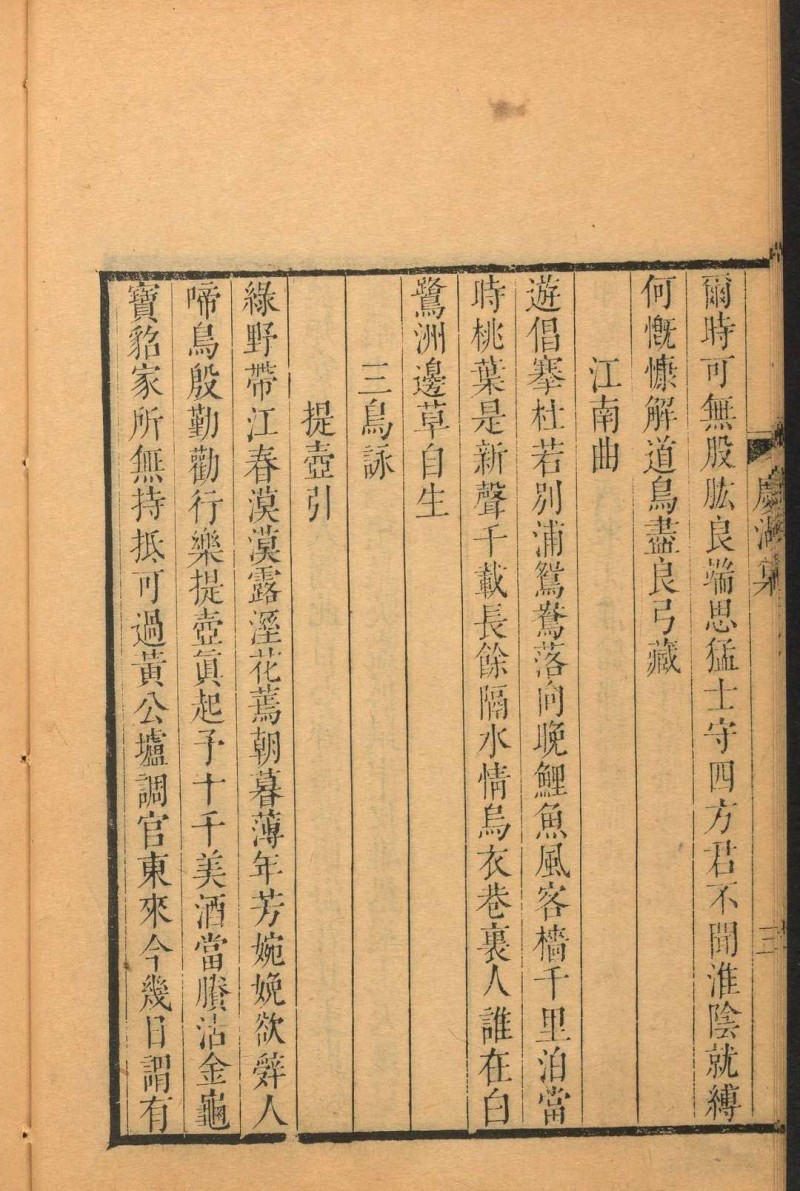 慶湖集
三
爾時可無股肱良端思猛士守四方君不聞淮陰就縛
何慨慷解道鳥盡良弓藏
江南曲
遊倡搴杜若別浦鴛鴦落向晚鯉魚風客檣千里泊當
時桃葉是新聲千載長餘隔水情烏衣巷裏人誰在白
鷺洲邊草自生
三鳥詠
提壺引
綠野帶江春漠漠露溼花蔫朝暮薄年芳婉娩欲辤人
啼鳥殷勤勸行樂提壺眞起予十千美酒當賸沽金龜
寶貂家所無持抵可過黃公壚調官東來今幾日謂有